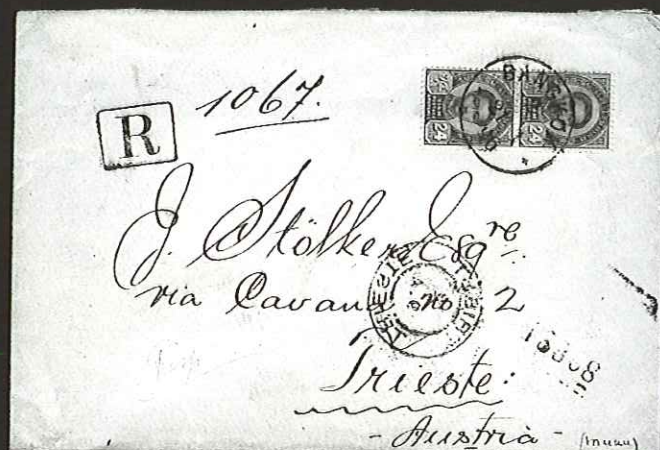 1067.
R
24 24
BANGKOK
J. Stölker Esqre.
via Cavana no 2
TRIESTE
Trieste:
- Austria -